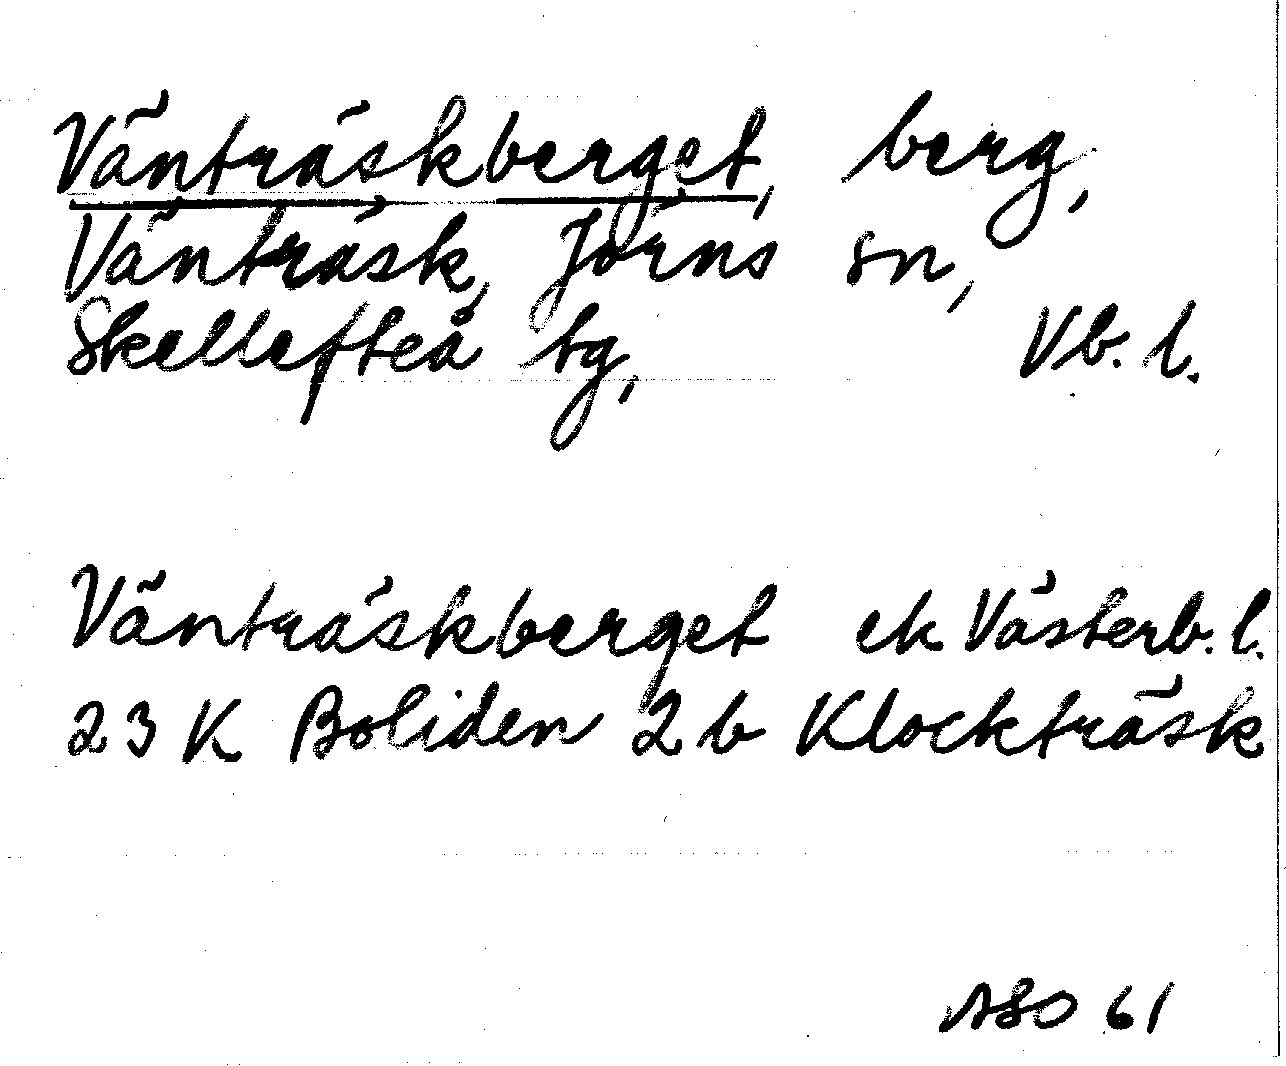 Vänträskberget, berg,
Vänträsk, Jörns sn,
Skellefteå tg, Vb. l.
Vänträskberget ek Västerb. l.
23 K Boliden 2 b Klockträsk
ASO 61